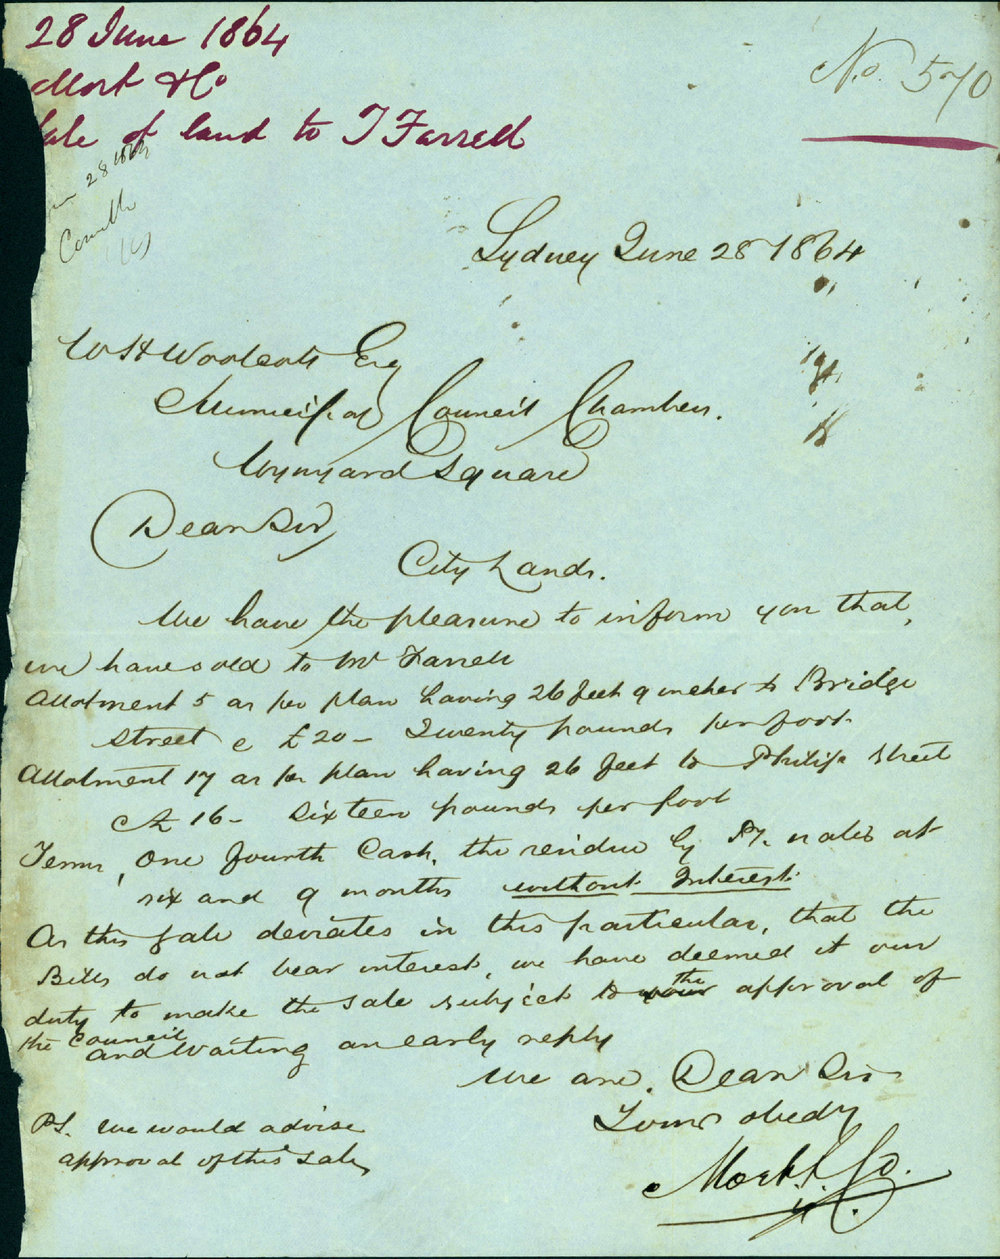 28 June 1864
Mort & Co
Sale of land to T Farrell
No. 570
28
Sydney June 28 1864
W H Woolcott Esq
Municipal Council Chambers.
Wynyard Square
Dear Sir
City Lands.
We have the pleasure to inform you that,
we have sold to Mr Farrell
Allotment 5 as per plan having 26 feet 9 inches to Bridge
Street @ £20 - Twenty pounds per foot.
Allotment 17 as per plan having 26 feet to Philip Street
@ £16 - Sixteen pounds per foot
Terms, One fourth Cash, the residue by P. notes at
six and 9 months without Interest.
As this sale deviates in this particular, that the
Bills do not bear interest, we have deemed it our
duty to make the sale subject to your the approval of
the Council
and Waiting an early reply
We are. Dear Sir
Yours obedy
Mort & Co.
PS. We would advise
approval of this sale